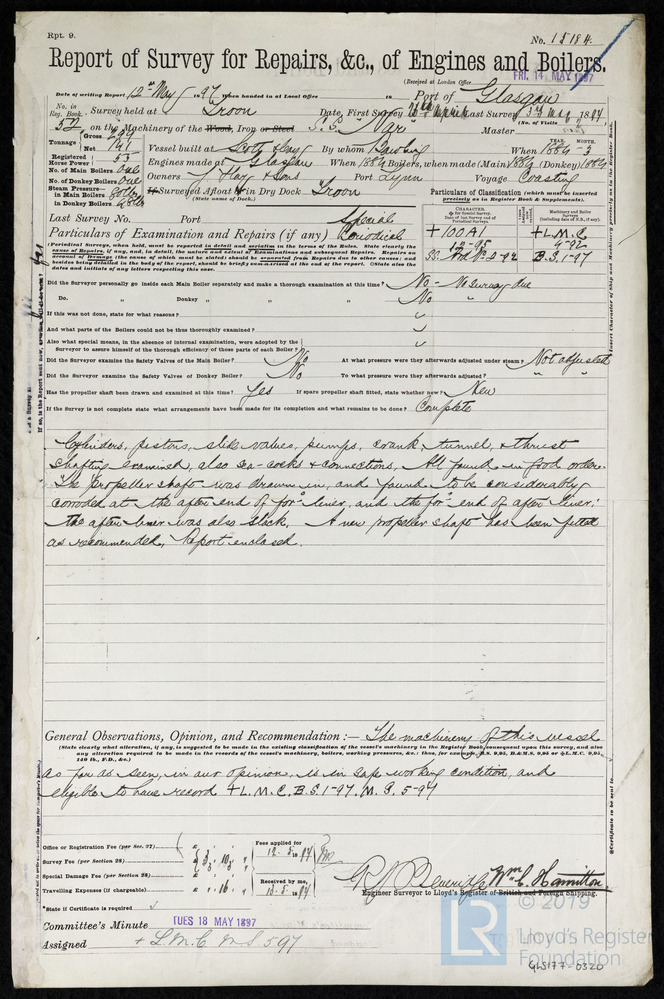 Rpt. 9.
No. 15184
Report of Survey for Repairs, &c., of Engines and Boilers.
(Received at London Office FRI. 14 MAY 1897
Date of writing Report 12th May 1897 When handed in at Local Office 18 Port of Glasgow
No. in Reg. Book. Survey held at Troon Date, First Survey Last Survey 3rd May 1897
(No. of Visits
52 on the Machinery of the Wood, Iron or Steel S.S. Nar Master
Tonnage Gross Net Vessel built at By whom When 1889 YEAR. MONTH. 3
Registered Horse Power 53 Engines made at Glasgow When 1889 Boilers, when made (Main) 1889 (Donkey) 1889
No. of Main Boilers One Owners & Sons Port Lynn Voyage Coasting
No. of Donkey Boilers One
Steam Pressure in Main Boilers If Surveyed Afloat or in Dry Dock Troon
in Donkey Boilers (State name of Dock.)
Particulars of Classification (which must be inserted precisely as in Register Book & Supplements).
Last Survey No. Port Special
Particulars of Examination and Repairs (if any) Periodical
CHARACTER. for Special Survey. Date of last Survey and of Periodical Surveys.
Machinery and Boiler Surveys (including date of N.B., if any).
+100A1 +L.M.C.
12-95 4-92
SS. No 2-92 B.S. 1-97
(Periodical Surveys, when held, must be reported in detail and seriatim in the terms of the Rules. State clearly the cause of Repairs, if any, and, in detail, the nature and extent of Examinations and subsequent Repairs. Repairs on account of Damage (the cause of which must be stated) should be separated from Repairs due to other causes; and besides being detailed in the body of the report, should be briefly summarised at the end of the report. State also the dates and initials of any letters respecting this case.
Did the Surveyor personally go inside each Main Boiler separately and make a thorough examination at this time? No - No survey due
Do. " Donkey " " " " No "
If this was not done, state for what reasons?
And what parts of the Boilers could not be thus thoroughly examined?
Also what special means, in the absence of internal examination, were adopted by the Surveyor to assure himself of the thorough efficiency of those parts of each Boiler?
Did the Surveyor examine the Safety Valves of the Main Boiler? No At what pressure were they afterwards adjusted under steam? Not adjusted
Did the Surveyor examine the Safety Valves of Donkey Boiler? No To what pressure were they afterwards adjusted? " "
Has the propeller shaft been drawn and examined at this time? Yes If spare propeller shaft fitted, state whether new? New
If the Survey is not complete state what arrangements have been made for its completion and what remains to be done? Complete
Cylinders, pistons, slide valves, pumps, crank, tunnel, & thrust
shafting examined, also sea-cocks & connections, All found in good order.
The propeller shaft was drawn in, and found to be considerably
corroded at the after end of for'd liner, and the for'd end of after liner;
the after liner was also slack. A new propeller shaft has been fitted
as recommended, Report enclosed.
General Observations, Opinion, and Recommendation:— The machinery of this vessel
(State clearly what alteration, if any, is suggested to be made in the existing classification of the vessel's machinery in the Register Book consequent upon this survey, and also any alteration required to be made in the records of the vessel's machinery, boilers, working pressures, &c.: thus, for example, B.S. 9,95, B.&M.S. 9,95 or +L.M.C. 9,95, 140 lb., F.D., &c.)
as far as seen, in our opinion, is in safe working condition, and
eligible to have record +L.M.C. B.S. 1-97. M.S. 5-97
Office or Registration Fee (per Sec. 27) £ : :
Survey Fee (per Section 28) £ 3 : 10 :
Special Damage Fee (per Section 28) £ : :
Travelling Expenses (if chargeable) £ : 16 :
Fees applied for 12. 5. 1897
Received by me, 1897
R. J. Beveridge Wm. C. Hamilton
Engineer Surveyor to Lloyd's Register of British and Foreign Shipping.
*State if Certificate is required
Committee's Minute TUES 18 MAY 1897
Assigned + L.M.C. M S 5 97
© 2019
LR
Lloyd's Register
Foundation
GLS177-0320